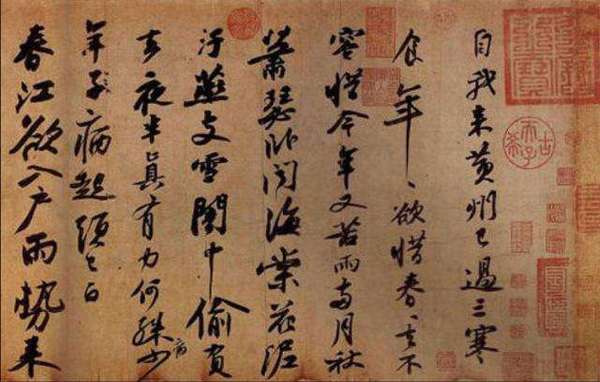 自我来黄州已過三寒
食年〻欲惜春〻去不
容惜今年又苦雨兩月秋
蕭瑟卧聞海棠花泥
汙燕支雪闇中偷負
去夜半真有力何殊病少
年子病起須已白
春江欲入户雨勢来
古希天子